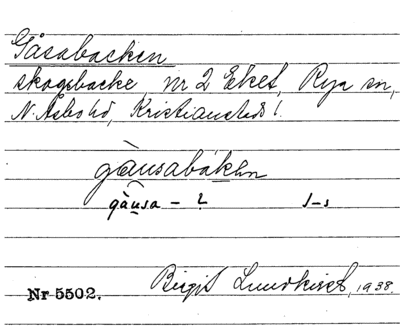 Gåsabacken
skogsbacke, nr 2 Eket, Rya sn,
N. Åsbo hd, Kristianstads l.
gàusabákən
gàusa – ?   1–s
Nr 5502.
Birgit Lundkvist, 1938.